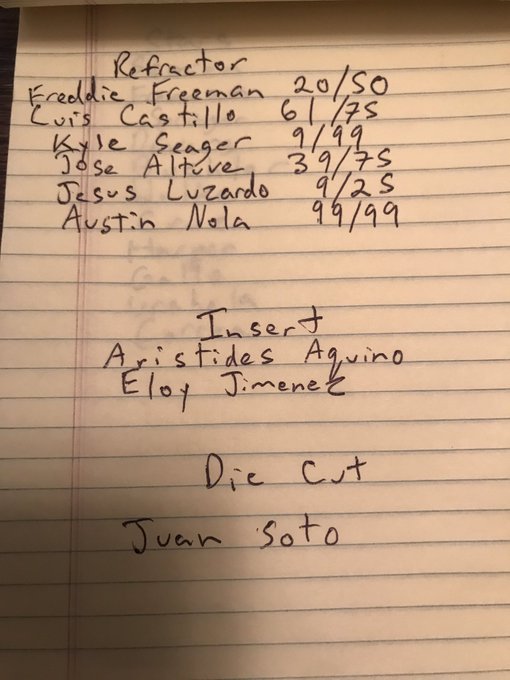 Refractor
Freddie Freeman 20/50
Luis Castillo 61/75
Kyle Seager 9/99
Jose Altuve 39/75
Jesus Luzardo 9/25
Austin Nola 99/99
Insert
Aristides Aquino
Eloy Jimenez
Die Cut
Juan Soto